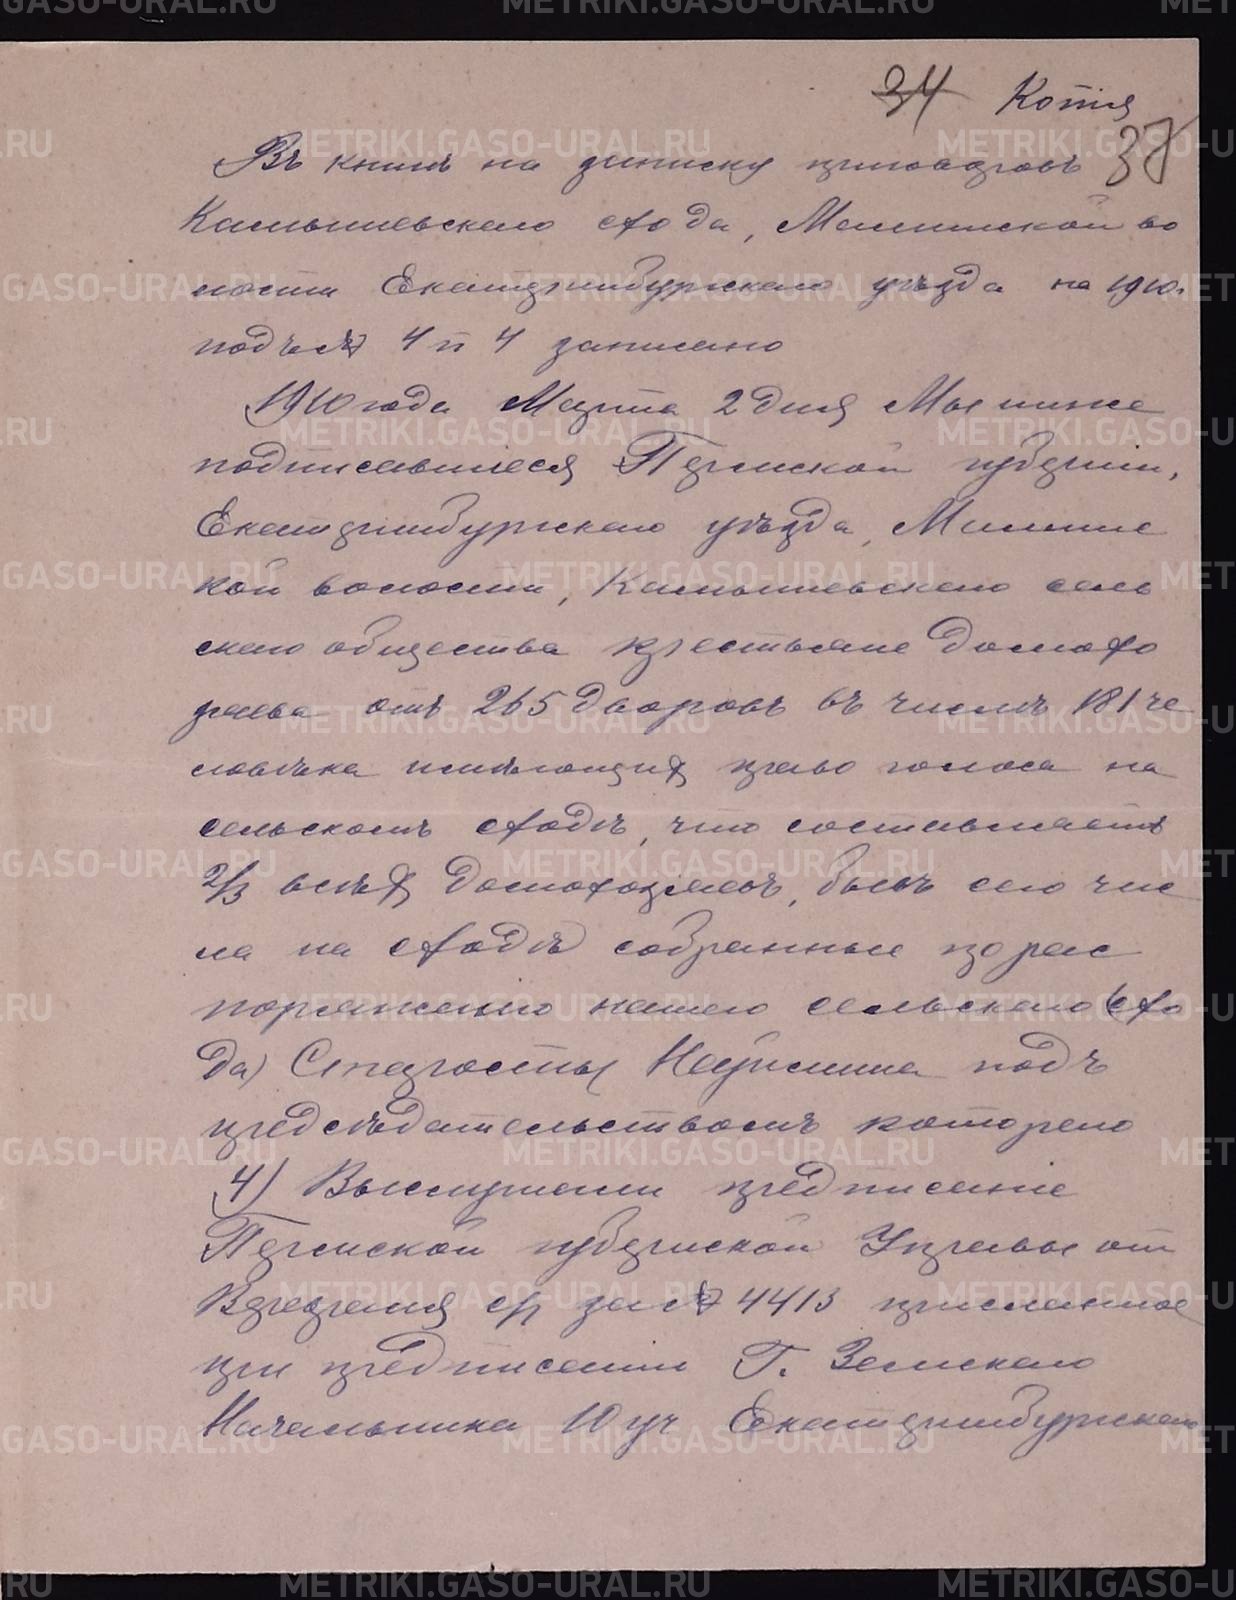 34 Копія
37
Въ книгѣ на записку приговоровъ
Камышевскаго схода, Маминской во
лости Екатеринбургскаго уѣзда на 1910.
подъ № 4 и 4 записано
1910 года Марта 2 дня Мы ниже
подписавшіеся Пермской губерніи,
Екатеринбургскаго уѣзда, Мамин
ской волости, Камышевскаго сель
скаго общества крестьяне домохо
зяева отъ 265 дворовъ въ числѣ 181 че
ловѣка имѣющих право голоса на
сельскомъ сходѣ, что составляетъ
2/3 всѣх домохозяевъ, бывъ сего чис
ла на сходѣ собранные по рас
поряженію нашего сельскаго (схо
да) Старосты подъ
предсѣдательствомъ котораго
4) Выслушали предписаніе
Пермской губернской Управы от
за № 4413 присланное
при предписаніи Г. Земскаго
Начальника 10 уч Екатеринбургскаго
METRIKI.GASO-URAL.RU